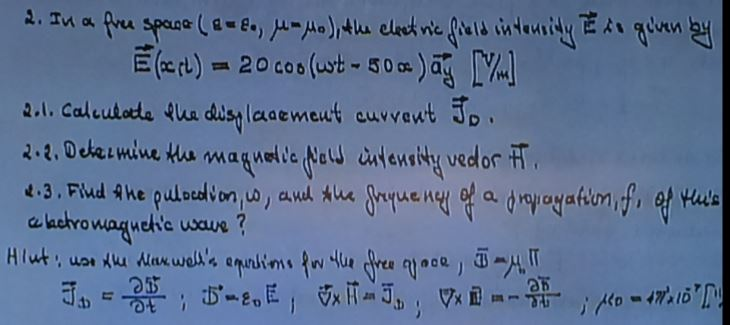 2. In a free space (ε=ε₀, μ=μ₀), the electric field intensity E⃗ is given by
E⃗(x,t) = 20 cos(ωt - 50x) a⃗y [V/m]
2.1. Calculate the displacement current J⃗D.
2.2. Determine the magnetic field intensity vector H⃗.
2.3. Find the pulsation, ω, and the frequency of a propagation, f, of this
electromagnetic wave?
Hint: use the Maxwell's equations for the free space, B⃗=μ₀H⃗
J⃗D = ∂D⃗/∂t ; D⃗=ε₀E⃗ ; ∇⃗×H⃗=J⃗D ; ∇×E⃗=-∂B⃗/∂t ; μ₀=4π×10⁻⁷[